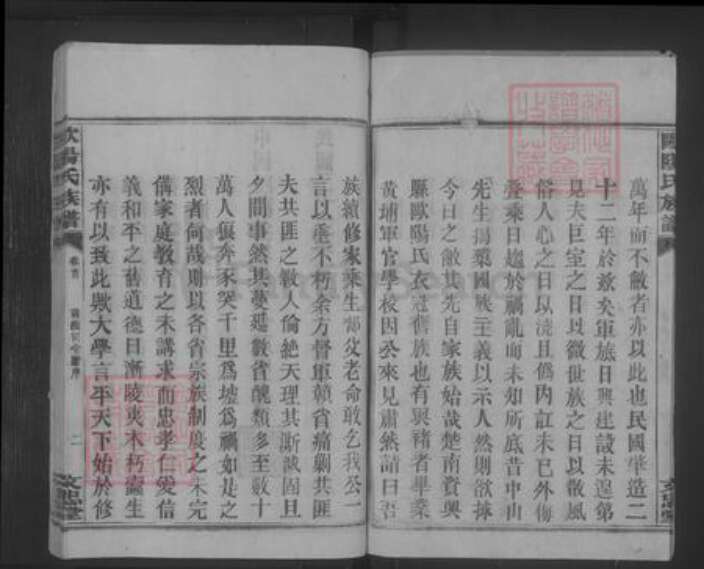 萬年而不敝者亦以此也民國肇造二
十二年於茲矣軍旅日興建設未遑第
見夫巨室之日以微世族之日以散風
俗人心之日以澆且僞內訌未已外侮
疊乘日趨於禍亂而未知所底昔中山
先生揭櫫國族主義以示人然則欲拯
今日之敝其先自家族始哉楚南資興
縣歐陽氏衣冠舊族也有與褚者畢業
黃埔軍官學校因公來見肅然請曰吾
族續修家乘生部父老命敢乞我公一
言以垂不朽余方督軍贛省痛剿共匪
夫共匪之數人倫絶天理其斯誠固且
夕間事然其夢延數省醜類多至數十
萬人狼奔豕突千里爲墟爲禍如是之
烈者何哉則以各省宗族制度之未完
備家庭教育之未講求而忠孝仁愛信
義和平之舊道德日漸陵夷木朽蠹生
亦有以致此歟大學言平天下始於修
歐陽氏族譜
卷首
二
文忠堂
歐陽氏族譜
文忠堂